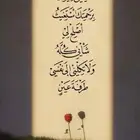 بِرَحْمَتِكَ أَسْتَغِيثُ
أَصْلِحْ لِي
شَأْنِي كُلَّهُ
وَلَا تَكِلْنِي إِلَى نَفْسِي
طَرْفَةَ عَيْنٍ